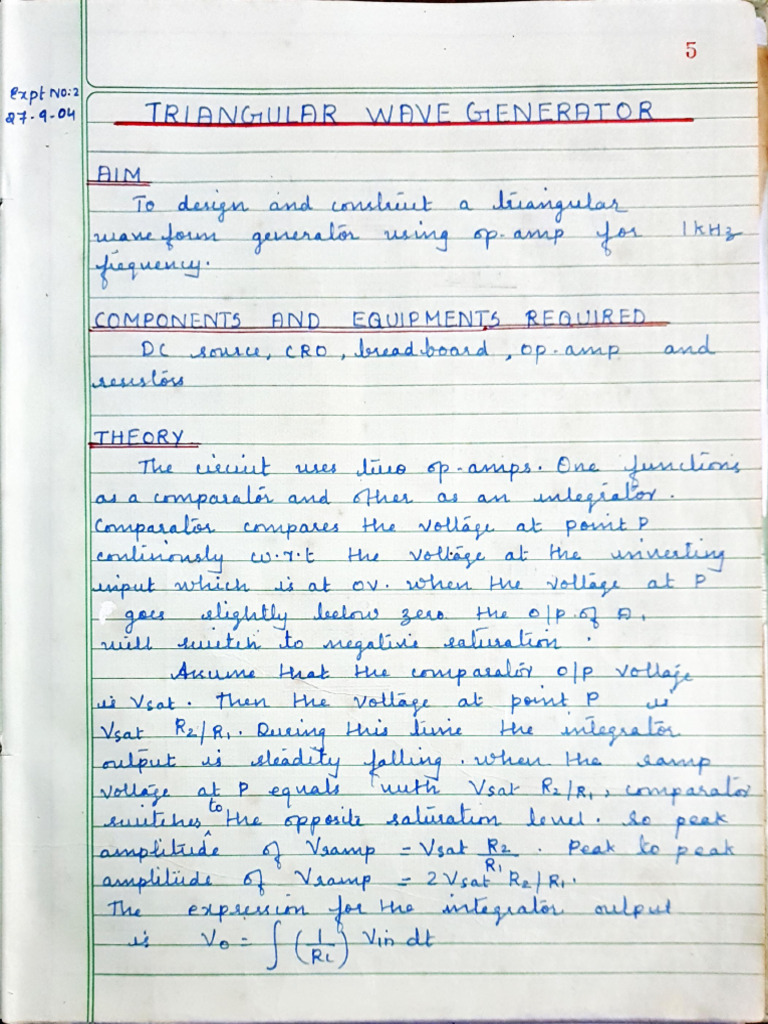 5
Expt No:2
27-9-04
TRIANGULAR WAVE GENERATOR
AIM
To design and construct a triangular
wave form generator using op.amp for 1kHz
frequency.
COMPONENTS AND EQUIPMENTS REQUIRED
DC source, CRO, bread board, op.amp and
resistors
THEORY
The circuit uses two op-amps. One functions
as a comparator and other as an integrator.
Comparator compares the voltage at point P
continiously w.r.t the voltage at the inverting
input which is at 0V. When the voltage at P
goes slightly below zero the O/P of A1
will switch to negative saturation.
Assume that the comparator O/P voltage
is Vsat. Then the voltage at point P is
Vsat R2/R1. During this time the integrator
output is steadity falling. When the ramp
voltage at P equals with Vsat R2/R1, comparator
switches to the opposite saturation level. So peak
amplitude of Vramp = Vsat R2/R1. Peak to peak
amplitude of Vramp = 2Vsat R2/R1.
The expression for the integrator output
is Vo = ∫ (1/Rc) Vin dt